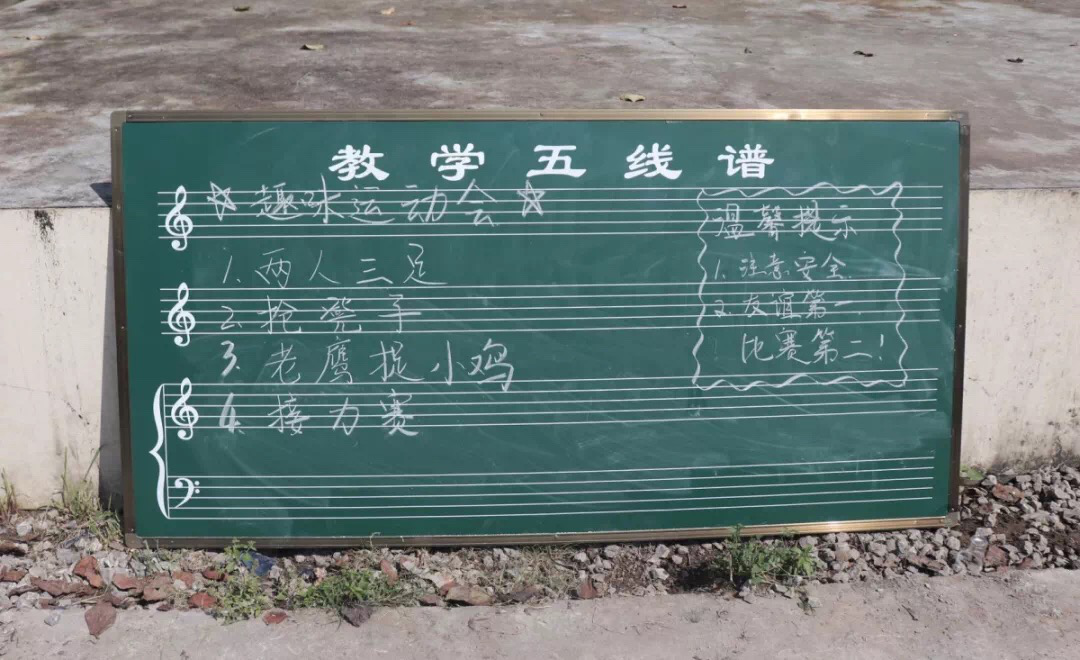 教学五线谱
☆趣味运动会☆
1. 两人三足
2. 抢凳子
3. 老鹰捉小鸡
4. 接力赛
温馨提示
1. 注意安全.
2. 友谊第一,
比赛第二!